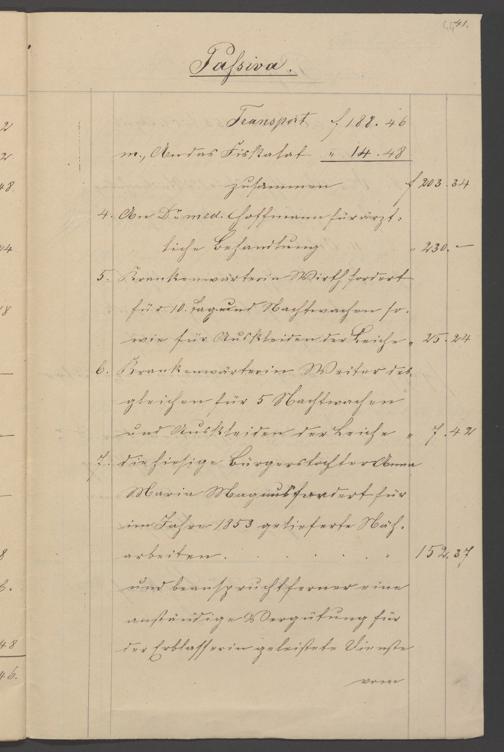 41.
Passiva.
Transport f 188. 46
m., An das Fiskalat " 14. 48
zusammen f 203. 34
4. An Dr. med. Hoffmann für ärzt-
liche Behandlung " 230. —
5. Krankenwärterin Wirth fordert
für 10. Tag und Nachtwachen so-
wie für Auskleiden der Leiche " 25. 24
6. Krankenwärterin Weiter des-
gleichen für 5 Nachtwachen
und Auskleiden der Leiche " 7. 42
7. die hiesige Bürgerstochter Anna
Maria Magnus fordert für
im Jahre 1853 gelieferte Näh-
arbeiten . . . . . " 152. 37
und beansprucht ferner eine
anständige Vergütung für
der Erblasserin geleistete Dienste
vom
2
2
48
44
18
8
6.
48
46.